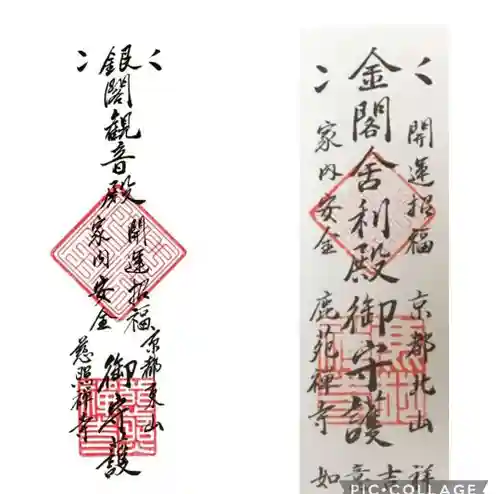 銀閣観音殿 御守護
開運招福 京都東山
家内安全 慈照禅寺
金閣舎利殿御守護
開運招福 京都北山
家内安全 鹿苑禅寺
祥
吉
意
如
PIC•COLLAGE